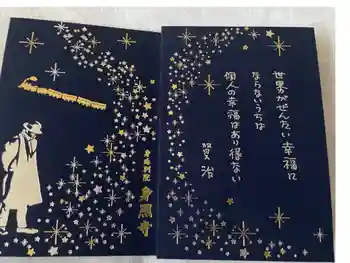 世界がぜんたい幸福に
ならないうちは
個人の幸福はあり得ない
賢治
身照寺